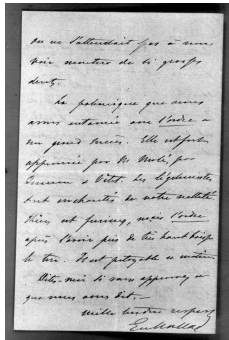 on ne s'attendait pas à nous
voir montrer de si grosses
dents.
La polémique que nous
avons entamée avec l'ordre a
un grand succès. Elle est fort
approuvée par M. Molé, par
les légitimistes
sont enchantés de votre netteté.
Thiers est furieux, mais l'ordre
après l'avoir pris de très haut baisse
le ton. Tout
Dites-moi si vous approuvez ce
que nous avons dit.
mille tendres respects